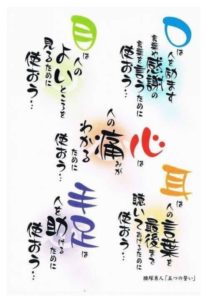 口は
人を励ます
言葉や感謝の
言葉を言うために
使おう…
目は
人の
よいところを
見るために
使おう…
耳は
人の
言葉を
最後まで
聴いてあげるために
使おう…
心は
人の
痛みが
わかる
ために
使おう…
手足は
人を
助ける
ために
使おう…
腰塚勇人「五つの誓い」